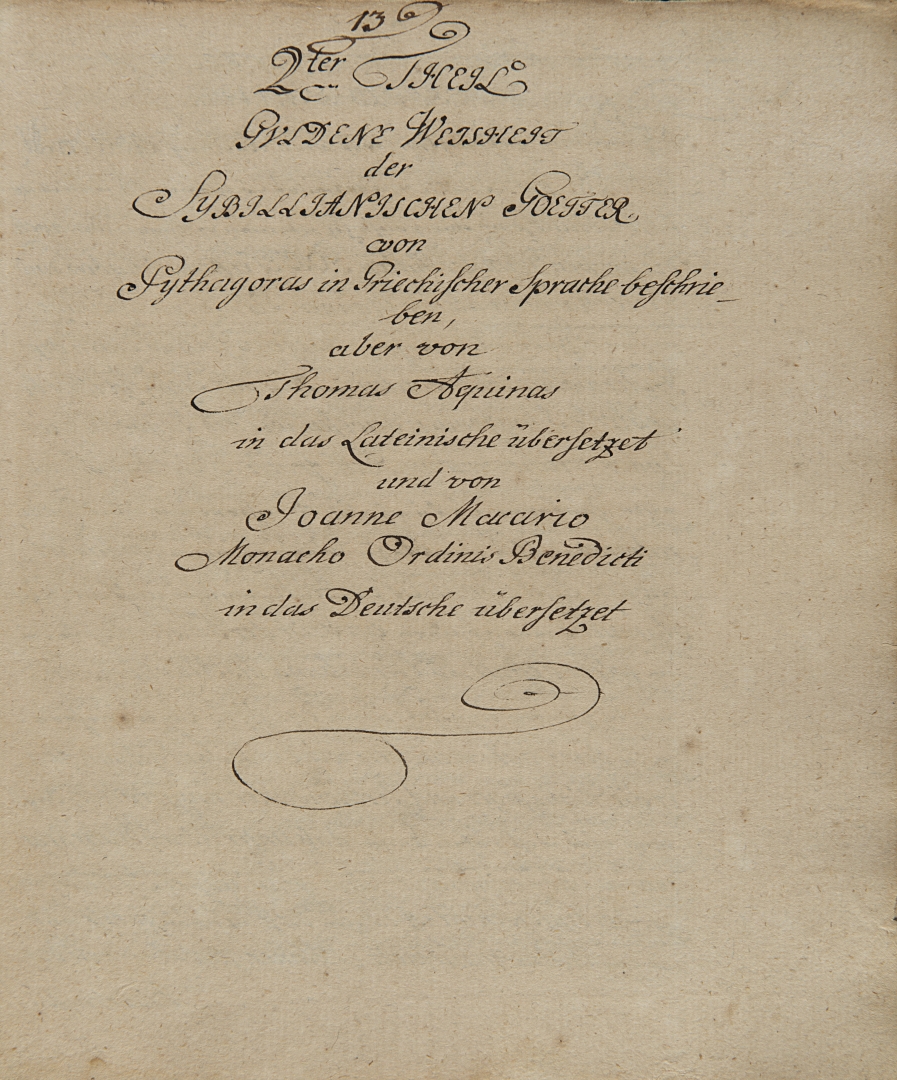 13
2ter THEIL
GVLDENE WEISHEIT
der
SYBILLIANISCHEN GOETTER
von
Pythagoras in Griechiſcher Sprache beſchrie-
ben,
aber von
Thomas Aquinas
in das Lateinische überſetzet
und von
Joanne Macario
Monacho Ordinis Benedicti
in das Deutsche überſetzet